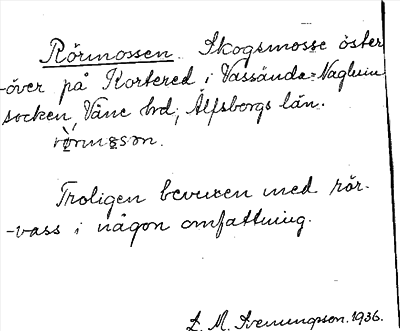 Rörmossen. Skogsmosse öster
-över på Kortered i Vassända-Naglum
socken, Väne hrd, Älfsborgs län.
Troligen bevuxen med rör-
-vass i någon omfattning.
L. M. Svenungsson. 1936.